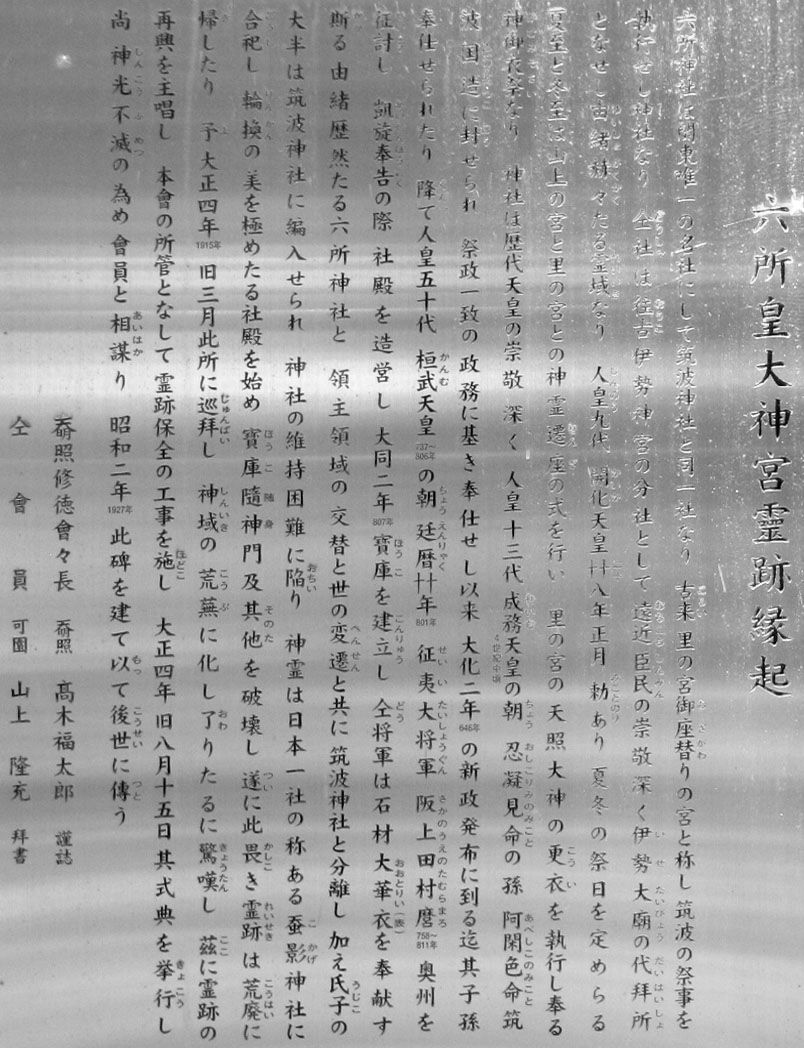 六所皇大神宮霊跡縁起
六所神社は関東唯一の名社にして筑波神社と同一社なり 古来里の宮御座替りの宮と称し筑波の祭事を
執行せし神社なり 仝社は往古伊勢神宮の分社として 遠近臣民の崇敬深く伊勢大廟の代拝所
となせし由緒赫々たる霊域なり 人皇九代 開化天皇廿八年正月 勅あり 夏冬の祭日を定めらる
夏至と冬至は山上の宮と里の宮との神霊遷座の式を行い 里の宮の天照大神の更衣を執行し奉る
神御衣祭なり 神社は歴代天皇の崇敬 深く 人皇十三代 成務天皇4世紀中頃の朝 忍凝見命の孫 阿閉色命 筑
波国造に封せられ 祭政一致の政務に基き奉仕せし以来 大化二年646年の新政発布に到る迄其子孫
奉仕せられたり 降て人皇五十代 桓武天皇737〜806年の朝 廷暦廿年801年 征夷大将軍 阪上田村麿758〜811年 奥州を
征討し 凱旋奉告の際 社殿を造営し 大同二年807年寶庫を建立し 仝将軍は石材大華衣を奉献す
斯る由緒歴然たる六所神社と 領主領域の交替と世の変遷と共に筑波神社と分離し 加え氏子の
大半は筑波神社に編入せられ 神社の維持困難に陥り 神霊は日本一社の称ある蚕影神社に
合祀し 輪換の美を極めたる社殿を始め 寶庫隨神門及其他を破壊し 遂に此畏き霊跡は荒廃に
帰したり 予大正四年1915年旧三月此所に巡拜し 神域の荒蕪に化し了りたるに驚嘆し 茲に霊跡の
再興を主唱し 本會の所管となして霊跡保全の工事を施し 大正四年旧八月十五日其式典を挙行し
尚神光不滅の為め會員と相謀り 昭和二年1927年此碑を建て以て後世に傳う
奝照修徳會々長 奝照 髙木福太郎 謹誌
仝會員 可園 山上隆充 拜書